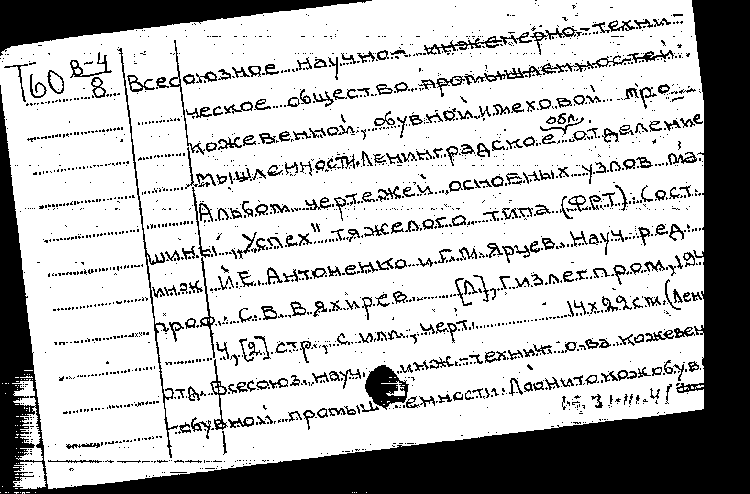 Т60 В-4/8
Всесоюзное научно-инженерно-техни-
ческое общество промышленностей
кожевенной, обувной и меховой про-
мышленности. Ленинградское обл. отделение
Альбом чертежей основных узлов ма-
шины "Успех" тяжелого типа (ФРТ). Сост.
инж. И.Е. Антоненко и Г.М. Ярцев. Науч. ред.
проф. С.В. Вяхирев. [Л.], Гизлегпром, 194
4, [2] стр., с илл., черт. 14х22 см. (Лен
отд. Всесоюз. науч. инж.-технич. о-ва кожевен
-обувной промышленности. Ленитокожобув